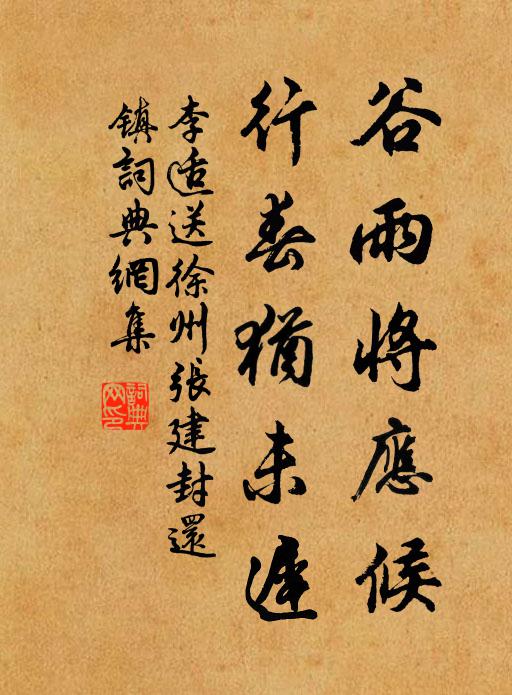 谷雨將應候
行春猶未遲
李适送徐州張建封還
鎮詞典網集
詞典
网印